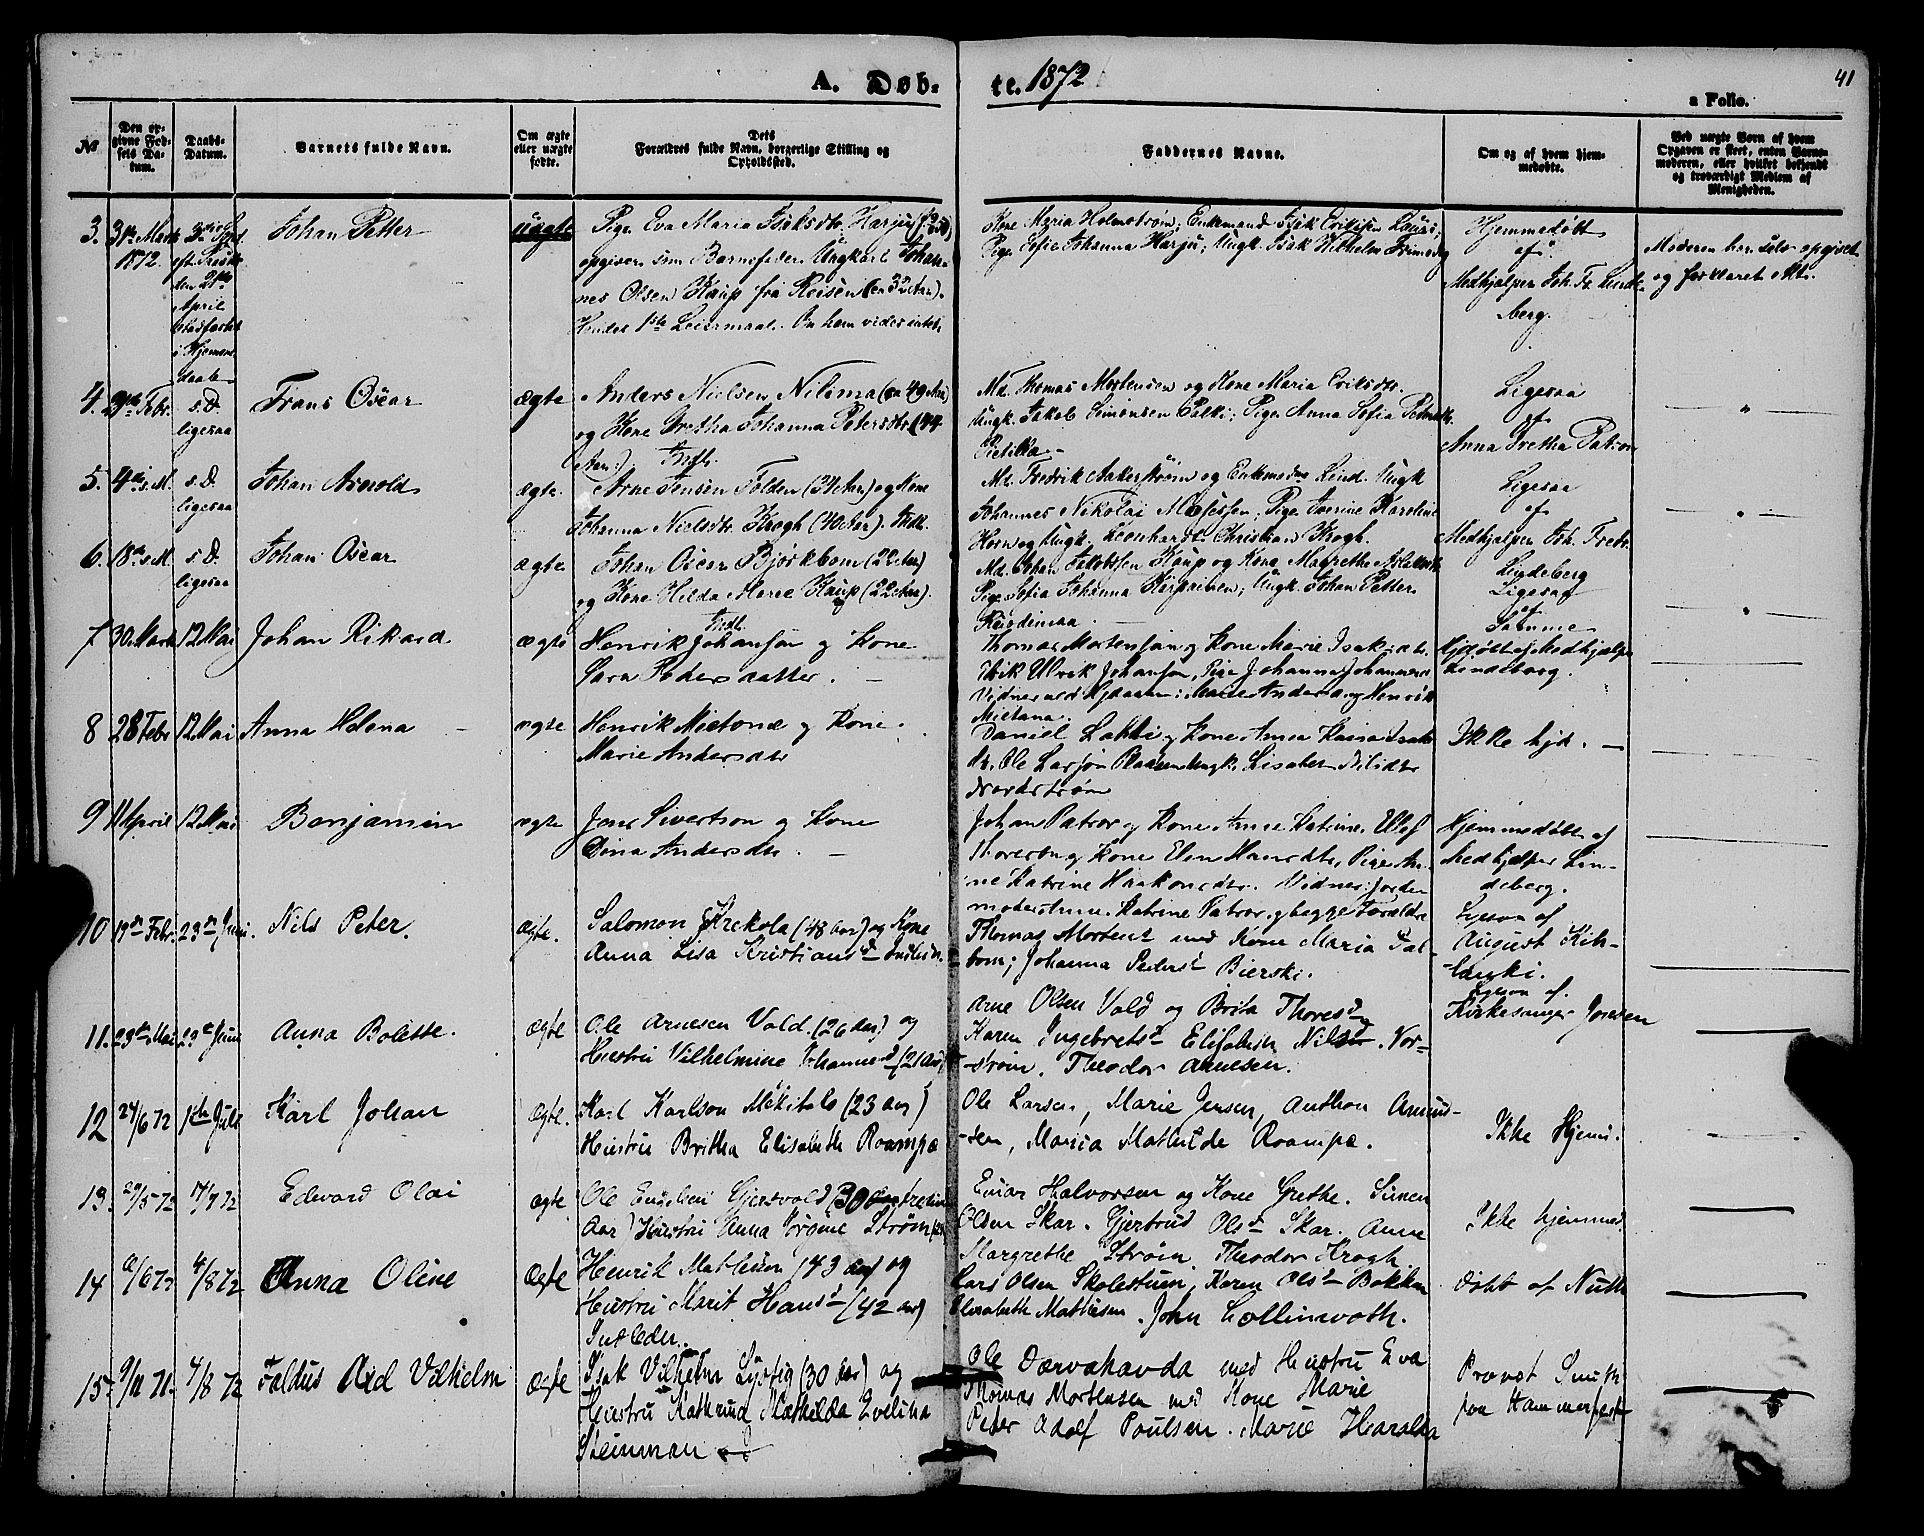 A. Døb-
te. 1872
41
a Folio.
№
Den op-
givne Fød-
sels Da-
tum.
Daabs-
Datum.
Barnets fulde Navn.
Om ægte
eller uægte
fødte.
Dets
Forældres fulde Navn, borgerlige Stilling og
Opholdssted.
Faddernes Navne.
Om og af hvem hjem-
medøbte.
Ved uægte Børn af hvem
Opgaven er skeet, enten Barne-
moderen, eller hvilket bekjendt
og troværdigt Medlem af
Menigheden.
3. 31te Marts
1872.
den 21de
April
i Hjemme-
daab
Johan Petter
uægte
Pige Eva Maria Isaksdtr. Harju
opgiver som Barnefader Ungkarl Johan-
nes Olsen Kaup fra Reisen (ca 32 Aar).
Hendes 1ste Leiermaal. Om ham vides intet.
Kone Maria Holmstrøm; Enkemand Isak Eriksen Lauri;
Pige Eva Johanna Harju; Ungk. Isak Vilhelm
Hjemmedøbt
af
Medhjælper Joh. Fr. Linde-
berg.
Moderen har selv opgivet
og forklaret Alt.
4. Febr.
s. D.
ligesaa
Frans Oscar
ægte
Anders Nielsen Nilima (ca 49 Aar)
og Kone Gretha Johanna Petersdtr (44
Aar) Indl.
Md. Thomas Mortensen og Kone Maria Eriksdtr.
Ungk. Jakob Simonsen Palki; Pige Anna Sofia
Pietikka.
Ligesaa
af
Anna Gretha Patron
"
5. 4de s. M.
s. D.
ligesaa
Johan Arnold
ægte.
Arne Jensen Folden (34 Aar) og Kone
Johanna Nielsdtr. Krogh (40 Aar). Indl.
Md. Fredrik Aakerstrøm og Lind. Ungk
Johannes Nikolai Mosessen; Pige Karoline
Horn og Ungk. Leonhardt Christian Krogh.
Ligesaa
af
Medhjælper Joh. Fredr.
Lindeberg
"
6. 18de s. M.
s. D.
ligesaa
Johan Oscar
ægte
Johan Oscar Bjørkbom (22 Aar)
og Kone Hilda Marie Kaup (22 Aar).
Indl.
Md. Johan Jakobsen Kaup og Kone Magrethe
Pige Sofia Johanna; Ungk. Johan Petter
Ligesaa
af
Samme
"
7 30 Marts 12 Mai
Johan Rikard
ægte
Henrik Johansen og Kone
Sara Pedersdatter. —
Thomas Mortensen og Kone Marie Isaksdtr.
Ulrik Johansen, Pige Johanna Johannesd
Vidner ved Hjdaaben: Marie Andersd. og Henrik
Mietana.
Hjdøbt af Medhjælper
Lindeberg.
8 28 Febr 12 Mai
Anna Helena —
ægte
Henrik Mietana og Kone
Marie Andersdtr
Daniel Lakki og Kone Anna Kaisa Isaks
dtr. Ole Larsen Ungk. Lisabet Nilsdtr
Nordstrøm
Ikke hjd. —
9 11 April 12 Mai
Benjamin
ægte
Jens Sivertsen og Kone
Dina Andersdtr. —
Johan Patror og Kone Anna Katrine. Ellef
Thoresen og Kone Elen Hansdtr, Pige An-
ne Katrine Haakonsdtr. Vidner: Jorde-
moder Anne Katrine Patror og begge Forældre
Hjemmedøbt af
Medhjælper Lin-
deberg.
10 19de Febr. 23de Juni.
Nils Peter.
ægte.
Salomon Krekola (48 Aar) og Kone
Anna Lisa Kristiansd
Thomas Mortens med Kone Maria Pal-
bom; Johanna Peders Bierski.
Ligesaa af
August Kih-
langki.
11. 23de Mai 23de Juni
Anna Bolette.
ægte
Ole Arnesen Vold. (26 Aar) og
Hustru Vilhelmine Johannesd (21 Aar)
Arne Olsen Vold og Brita Thoresd.
Karen Ingebretsd Elisabeth Nilsd. Nor-
strøm. Theodor Arnesen.
Ligesaa af.
Kirkesanger Jordan
12 24/6 72 1ste Juli
Karl Johan
ægte.
Karl Karlson Mekitalo (23 Aar)
Hustru Britha Elisabeth Roampa
Ole Larsen, Marie Jensen, Anthon Amund-
sen, Maria Mathilde Roampa.
Ikke Hjem.
13. 29/5 72 14/7 72
Edvard Olai
ægte
Ole Gjertvold (30
Aar) Hustru Anna Jørgine Strøm
Einar Halvorsen og Kone Grethe. Simen
Olsen Skar. Gjertrud Olsd Skar. Anne
Margrethe Strøm. Theodor Krogh
Ikke hjemmed
14 6/6 72 4/8 72
Anna Oline
Ægte
Henrik Mathisen (43 Aar) og
Hustru Marit Hansd (42 Aar)
Indleder.
Lars Olsen Skolestuen, Karen Olsd Bakken
Elisabeth Mathisen. John Lollinvoth.
Døbt af Nuth
15 9/11 71. 4/8 72
Faldus Axel Vilhelm
ægte
Isak Vilhelm Lystig (30 Aar) og
Hustru Kathrina Mathilda Evelina
Steinman
Ole Dærvahavda med Hustru Eva
Thomas Mortensen med Kone Marie
Peter Adolf Poulsen. Marie Haralds
Provst Smith
fra Hammerfest